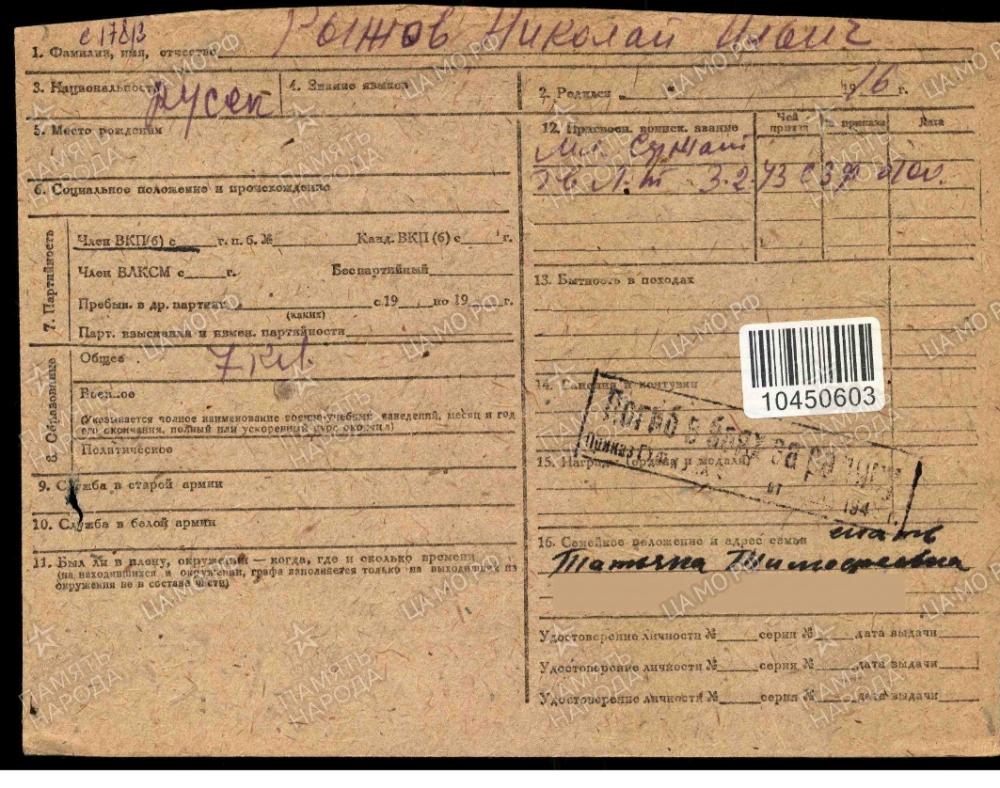 с 17813
1. Фамилия, имя, отчество Рыжов Николай Ильич
3. Национальность русск
4. Знание языков
2. Родился 1916 г.
5. Место рождения
12. Присвоен. воинск. звание
Чей приказ
№ приказа
Дата
Мл.
гв. л-т 3.2.43
6. Социальное положение и происхождение
7. Партийность
Член ВКП(б) с г. п. б. № Канд. ВКП (б) с г.
Член ВЛКСМ с г. Беспартийный
Пребын. в др. партиях с 19 по 19 г.
(каких)
Парт. взыскания и измен. партийности
13. Бытность в походах
8. Образование
Общее 7 кл.
Военное
(Указывается полное наименование военно-учебных заведений, месяц и год
его окончания, полный или ускоренный курс окончил)
Политическое
10450603
14. Ранения и контузии
Погиб в боях за Родину
Приказ ГУК
от 194
15. Награды (ордена и медали)
9. Служба в старой армии
10. Служба в белой армии
11. Был ли в плену, окружении — когда, где и сколько времени
(на находившихся в окружении, графа заполняется только на выходивших из
окружения не в составе части)
16. Семейное положение и адрес семьи мать
Татьяна Тимофеевна
Удостоверение личности № серия № дата выдачи
Удостоверение личности № серия № дата выдачи
Удостоверение личности № серия № дата выдачи
ПАМЯТЬ НАРОДА
ЦАМО.РФ